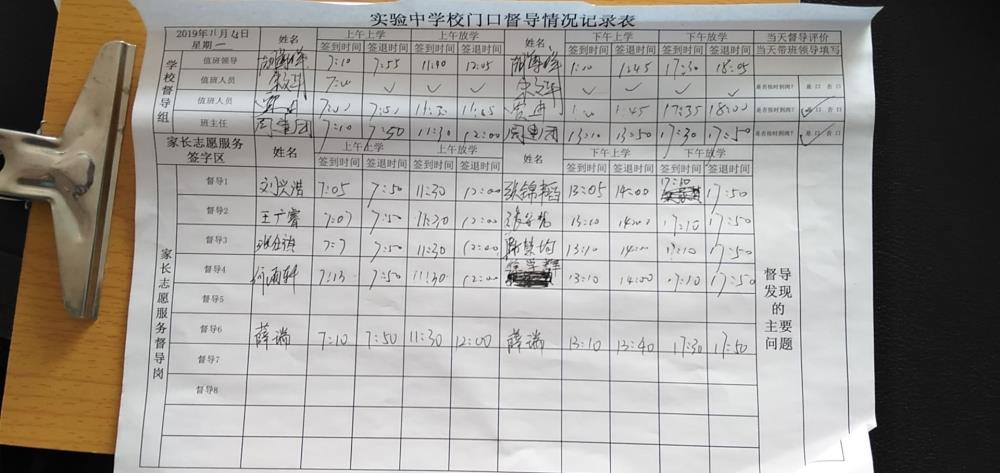 实验中学校门口督导情况记录表
2019年11月4日 星期一 姓名 上午上学 上午放学 姓名 下午上学 下午放学 当天督导评价
签到时间 签退时间 签到时间 签退时间 签到时间 签退时间 签到时间 签退时间 当天带班领导填写
学校督导组
值班领导 7:10 7:55 11:40 12:05 1:10 1:45 17:30 18:05
值班人员 是否按时到岗? 是 口 否 口
值班人员 7:00 7:50 11:30 1:45 17:35 18:00 是否按时到岗? 是 口 否 口
班主任 7:10 7:50 11:30 12:00 13:10 13:50 17:30 17:50 是否按时到岗? 是 口 否 口
家长志愿服务签字区 姓名 上午上学 上午放学 姓名 下午上学 下午放学
签到时间 签退时间 签到时间 签退时间 签到时间 签退时间 签到时间 签退时间
家长志愿服务督导岗
督导1 7:05 7:50 11:30 12:00 张锦韬 13:05 14:00 17:10 17:50
督导2 王广睿 7:07 7:50 11:30 12:00 13:10 14:00 17:10 17:50
督导3 7:7 7:50 11:30 12:00 13:10 14:00 17:10 17:50
督导4 何雨轩 7:13 7:50 11:30 12:00 13:10 14:00 17:10 17:50
督导5
督导6 薛瑞 7:10 7:50 11:30 12:00 薛瑞 13:10 13:40 17:30 17:50
督导7
督导8
督导
发现
的
主要
问题